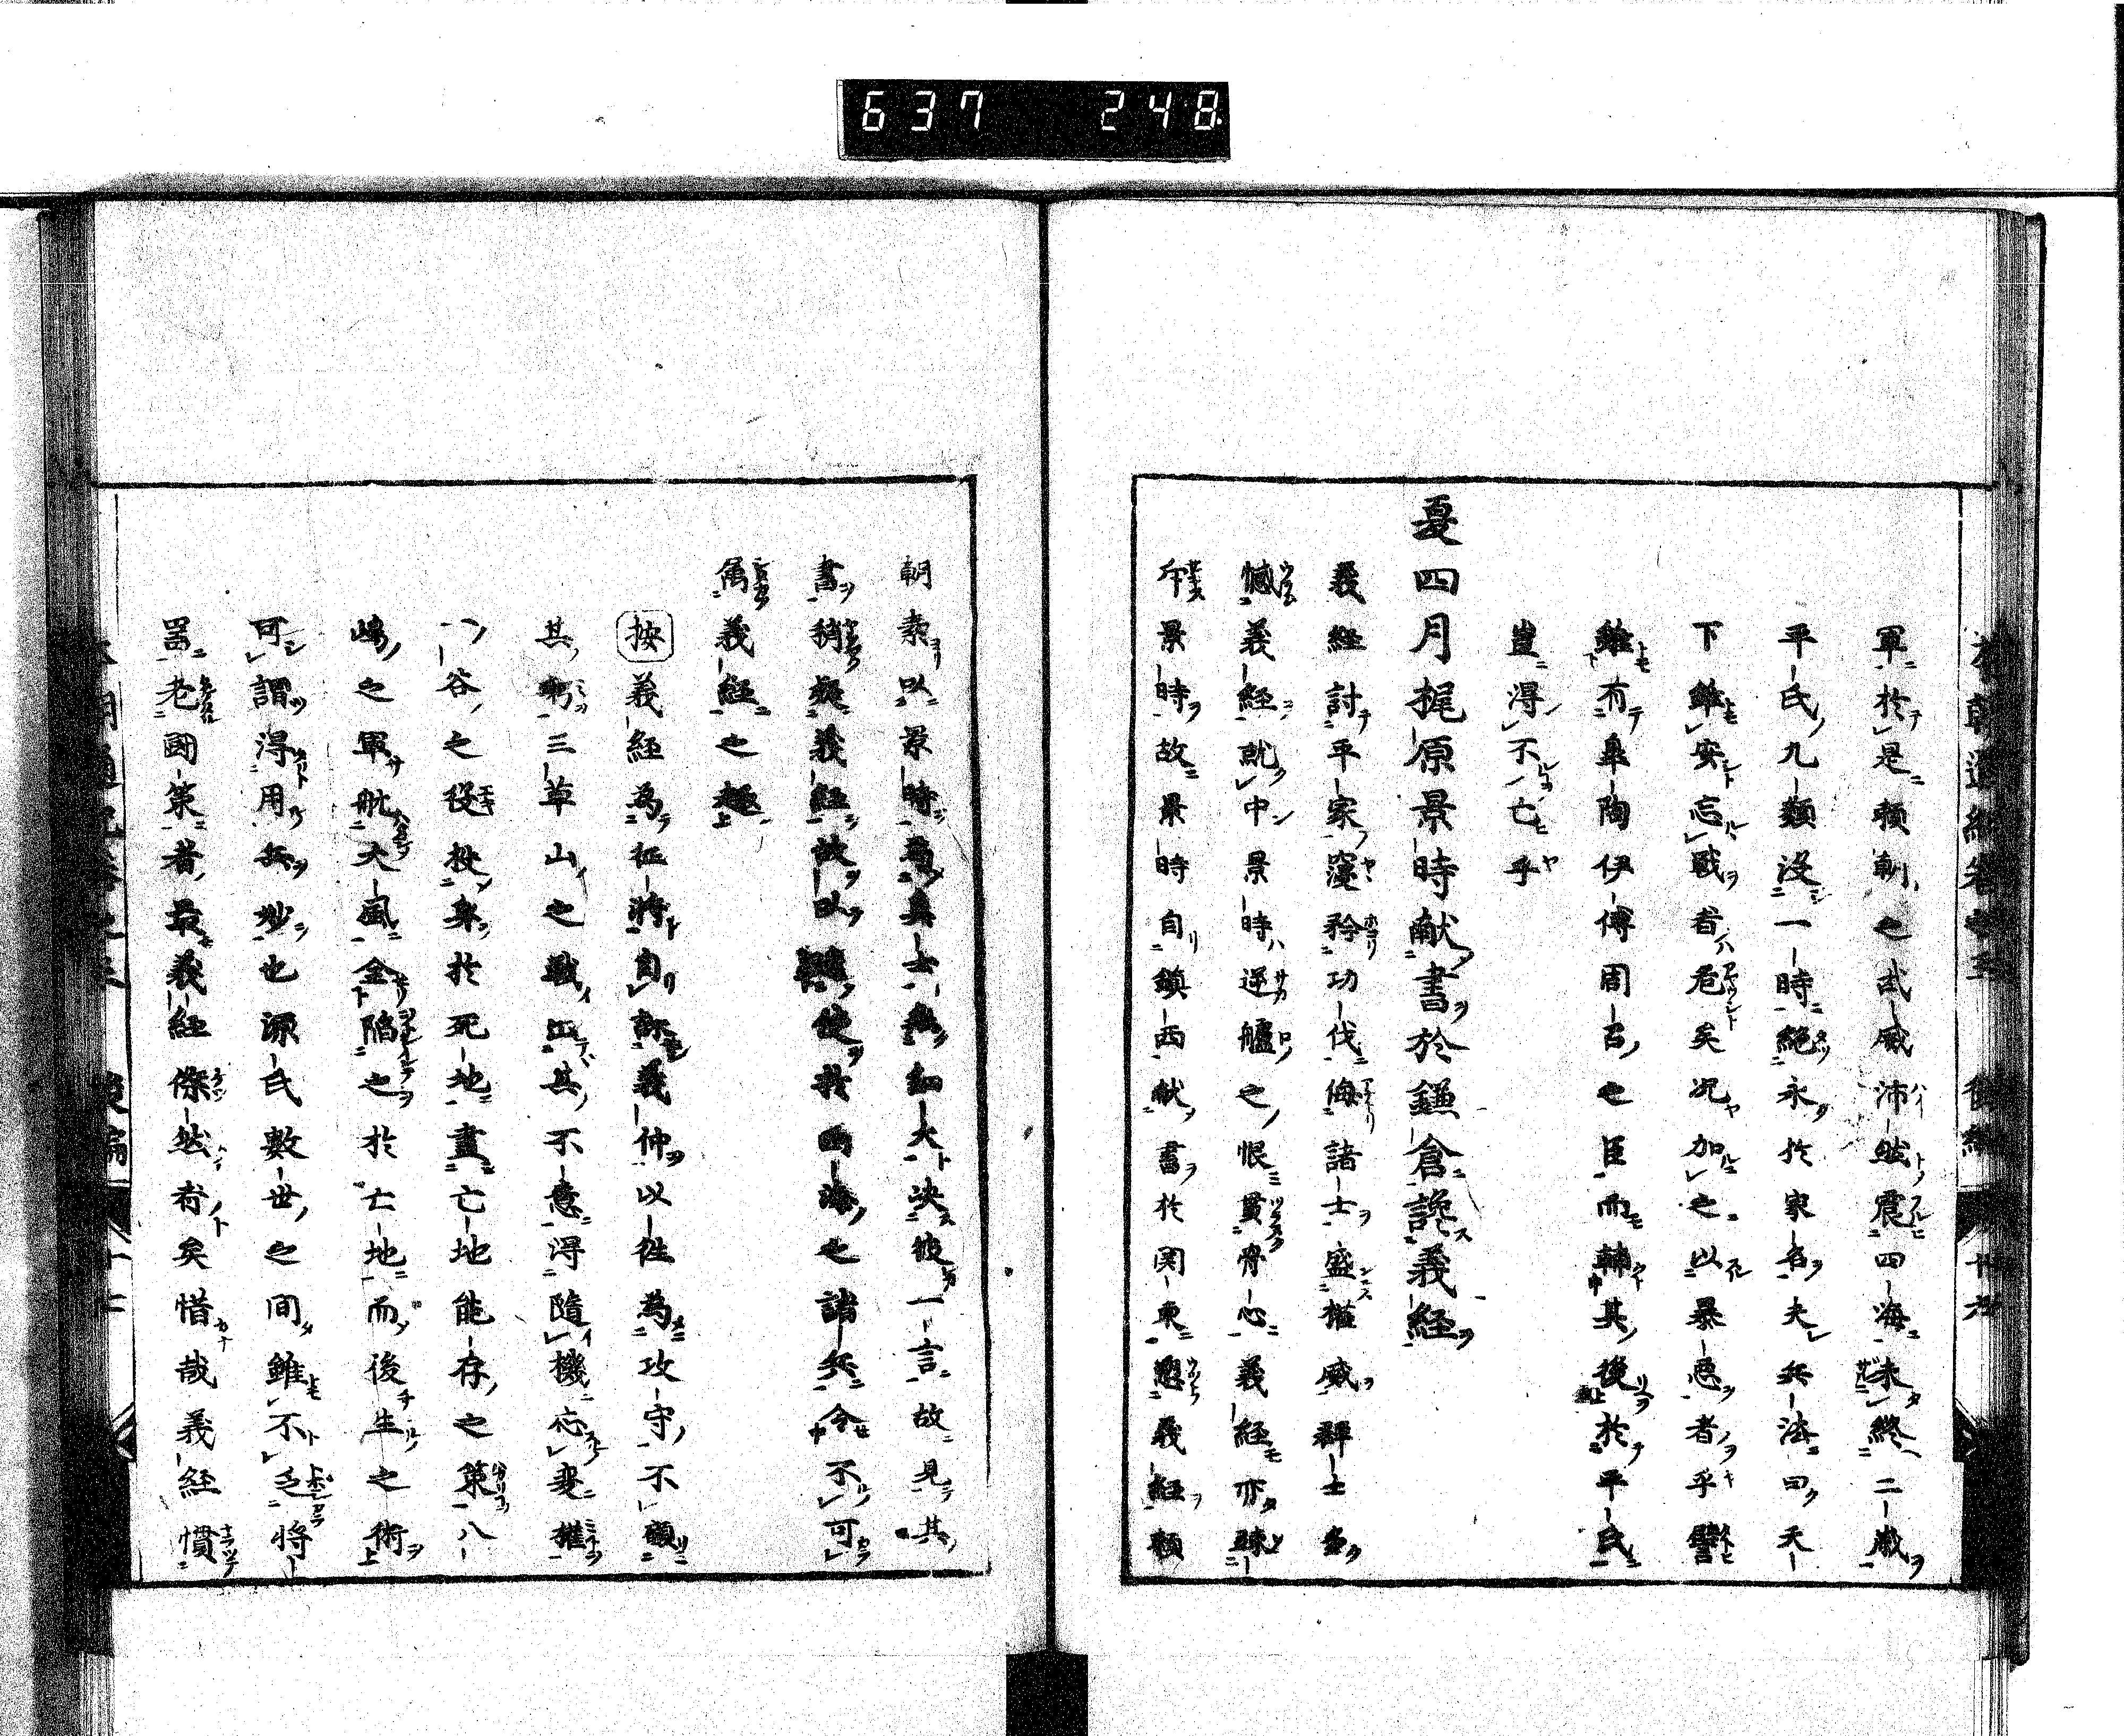 637 248
軍於是頼朝之武威沛然震四海未終二歳
平氏九類没一時絶永於家名夫兵法曰天
下雖安忘戰者危矣况加之以暴惡者乎譬
雖有皐陶伊傅周召之臣而輔其後於平氏
豈得不亡乎
夏四月梶原景時献書於鎌倉讒義経
義経討平家寖矜功伐侮諸士盛權威群士多
憾義経就中景時逆艫之恨貫骨心義経亦疎
斥景時故景時自鎮西献書於関東愬義経頼
朝素以景時為真士無細大決彼一言故見其
書稍疑義経故以使於西海之諸兵令不可
属義経之趣
按義経為征將自討義仲以徃為攻守不顧
其躬三草山之戰出其不意得隨機応変權
一谷之役投身於死地盡亡地能存之策八
嶋之軍航大風金陷之於亡地而後生之術
可謂得用兵妙也源氏數世之間雖不乏將
噐老國策者最義経傑然者矣惜哉義経慣